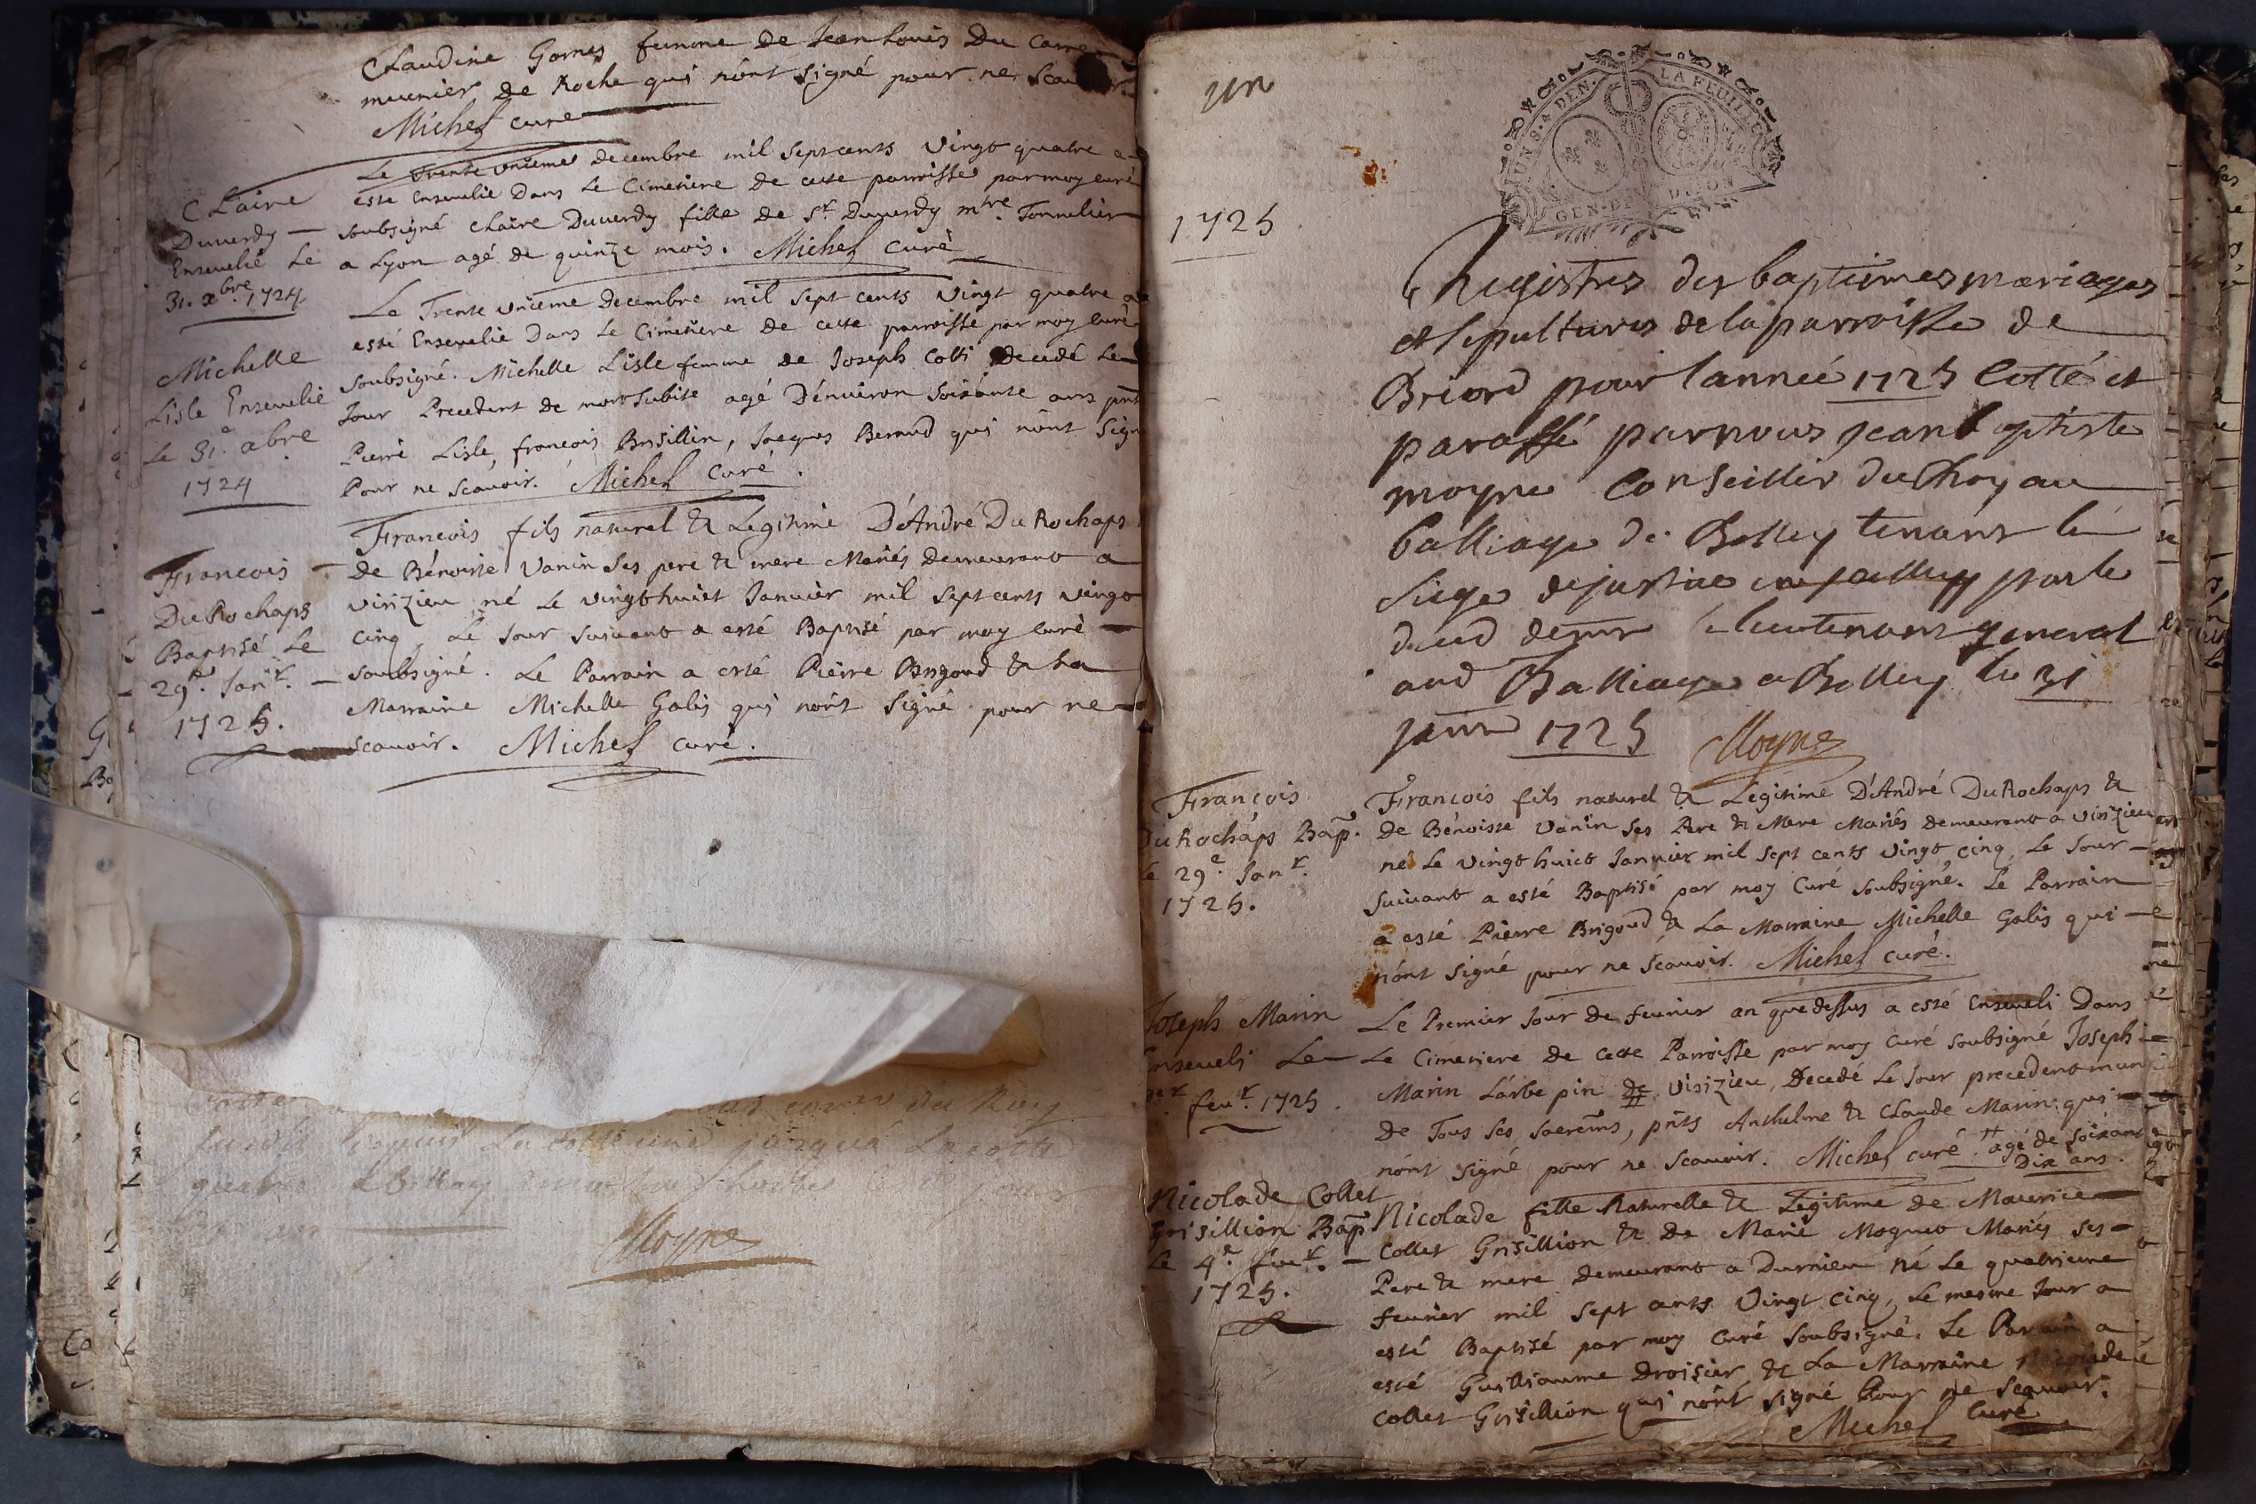 Claudine Gornes femme de Jean Louis Du Carre
meunier de Roche qui nónt signé pour ne scau
Michel curé
Claire
Duverdy —
Ensevelie Le
31. xbre. 1724.
Le Trente unieme decembre mil sept cents vingt quatre a
esté Ensevelie Dans Le Cimetiere de cette parroisse par moy curé
soubsigné Claire Duverdy fille de Sr. Duverdy mtre. Tonnelier
a Lyon agé de quinze mois. Michel curé
Michelle
Lisle Ensevelie
Le 31e xbre
1724
Le Trente unieme decembre mil sept cents vingt quatre a
esté Ensevelie Dans Le Cimetiere de cette parroisse par moy curé
soubsigné. Michelle Lisle femme de Joseph Cotti Decedé Le
Jour Precedent de mort subite agé Dénviron soixante ans pnts
Pierre Lisle, francois Brisillin, Jacques Beraud qui nónt signé
Pour ne scauoir. Michel Curé.
Francois
Du Rochaps
Baptisé Le
29e. Janr. —
1725.
Francois fils naturel & Legitime D'André Du Rochaps
de Bénoiste Vanin ses pere & mere Mariés demeurant a
virizieu né Le vingthuict Janvier mil sept cents vingt
cinq, Le Jour suivant a esté Baptisé par moy curé
soubsigné. Le Parrain a esté Pierre Brigoud & La
Marraine Michelle Galis qui nónt signé pour ne
scauoir. Michel curé.
du Roy
Moyne
un
1725
DEN. LA FEUILLE
GEN. DE DIJON
Registres des baptiemes mariages
et sepultures de la parroisse de
Briord pour lanneé 1725 Cotté et
paraffé par nous jean baptiste
moyne Conseiller du Roy au
balliage de Belley tenant le
siege de justice par le
deced de mr le lieutenant general
aud Balliage a Belley le 31
janv 1725 Moyne
François
Du Rochaps Bap.
Le 29e. Janr.
1725.
Francois fils naturel & Legitime D'André Du Rochaps &
de Bénoisse Vanin ses Pere & Mere Mariés demeurant a virizieu
né Le vingt huict Janvier mil sept cents vingt cinq, Le Jour —
suivant a esté Baptisé par moy Curé soubsigné. Le Parrain
a esté Pierre Brigoud & La Marraine Michelle Galis qui —
nónt signé pour ne scauoir. Michel curé.
Joseph Marin
Enseveli Le —
feur. 1725.
Le Premier Jour de feurier an que dessus a esté Enseveli Dans
Le Cimetiere de cette Parroisse par moy curé soubsigné Joseph
Marin Lárbepin de virizieu, Decedé Le Jour precedent muni
de Tous ses sacremts, pnts Anthelme & Claude Marin qui
nónt signé pour ne scauoir. Michel curé. agé de soixante
Dix ans.
Nicolade Collet
Grisillion Bap
Le 4e. feur. —
1725.
Nicolade fille Naturelle & Legitime de Maurice
Collet Grisillion & De Marie Moquet Mariés ses —
Pere & mere demeurant a Durnieu né Le quatrieme
feurier mil sept cents Vingt cinq, Le mesme Jour a
esté Baptisé par moy curé soubsigné. Le Parrain a
esté Guilliaume Droisier & La Marraine Nicolade
Collet Grisillion qui nónt signé Pour ne scauoir.
Michel Curé